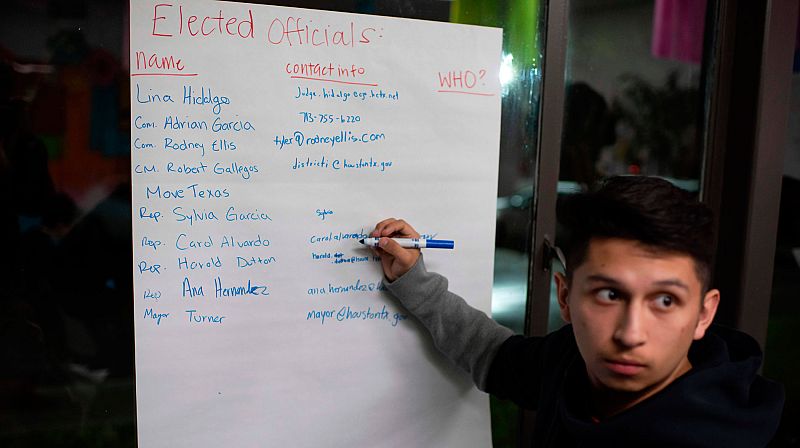 Elected Officials:
name contact info WHO?
Lina Hidalgo Judge.hidalgo@cjo.hctx.net
Com. Adrian Garcia 713-755-6220
Com. Rodney Ellis tyler@rodneyellis.com
CM. Robert Gallegos districti@houstontx.gov
Move Texas
Rep. Sylvia Garcia Sylvia
Rep. Carol Alvardo
Rep. Harold Dutton harold.
Rep Ana Hernandez
Mayor Turner mayor@houstontx.gov